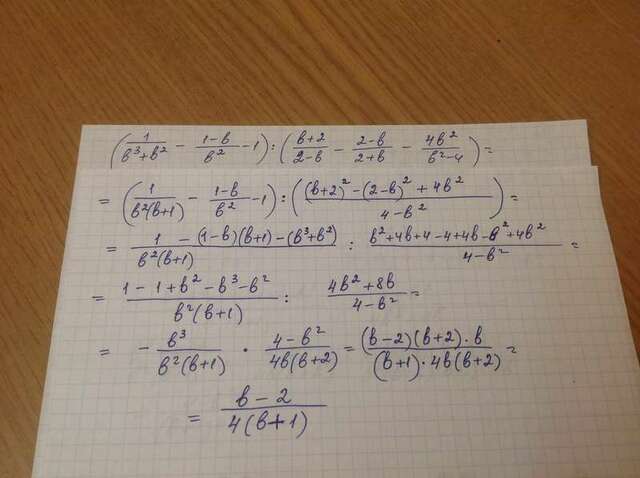 (1/(b³+b²) − (1−b)/b² − 1) : ((b+2)/(2−b) − (2−b)/(2+b) − 4b²/(b²−4)) =
= (1/(b²(b+1)) − (1−b)/b² − 1) : (((b+2)² − (2−b)² + 4b²)/(4−b²)) =
= (1 − (1−b)(b+1) − (b³+b²))/(b²(b+1)) : (b²+4b+4−4+4b−b²+4b²)/(4−b²) =
= (1−1+b²−b³−b²)/(b²(b+1)) : (4b²+8b)/(4−b²) =
= − b³/(b²(b+1)) · (4−b²)/(4b(b+2)) = ((b−2)(b+2)·b)/((b+1)·4b(b+2)) =
= (b−2)/(4(b+1))